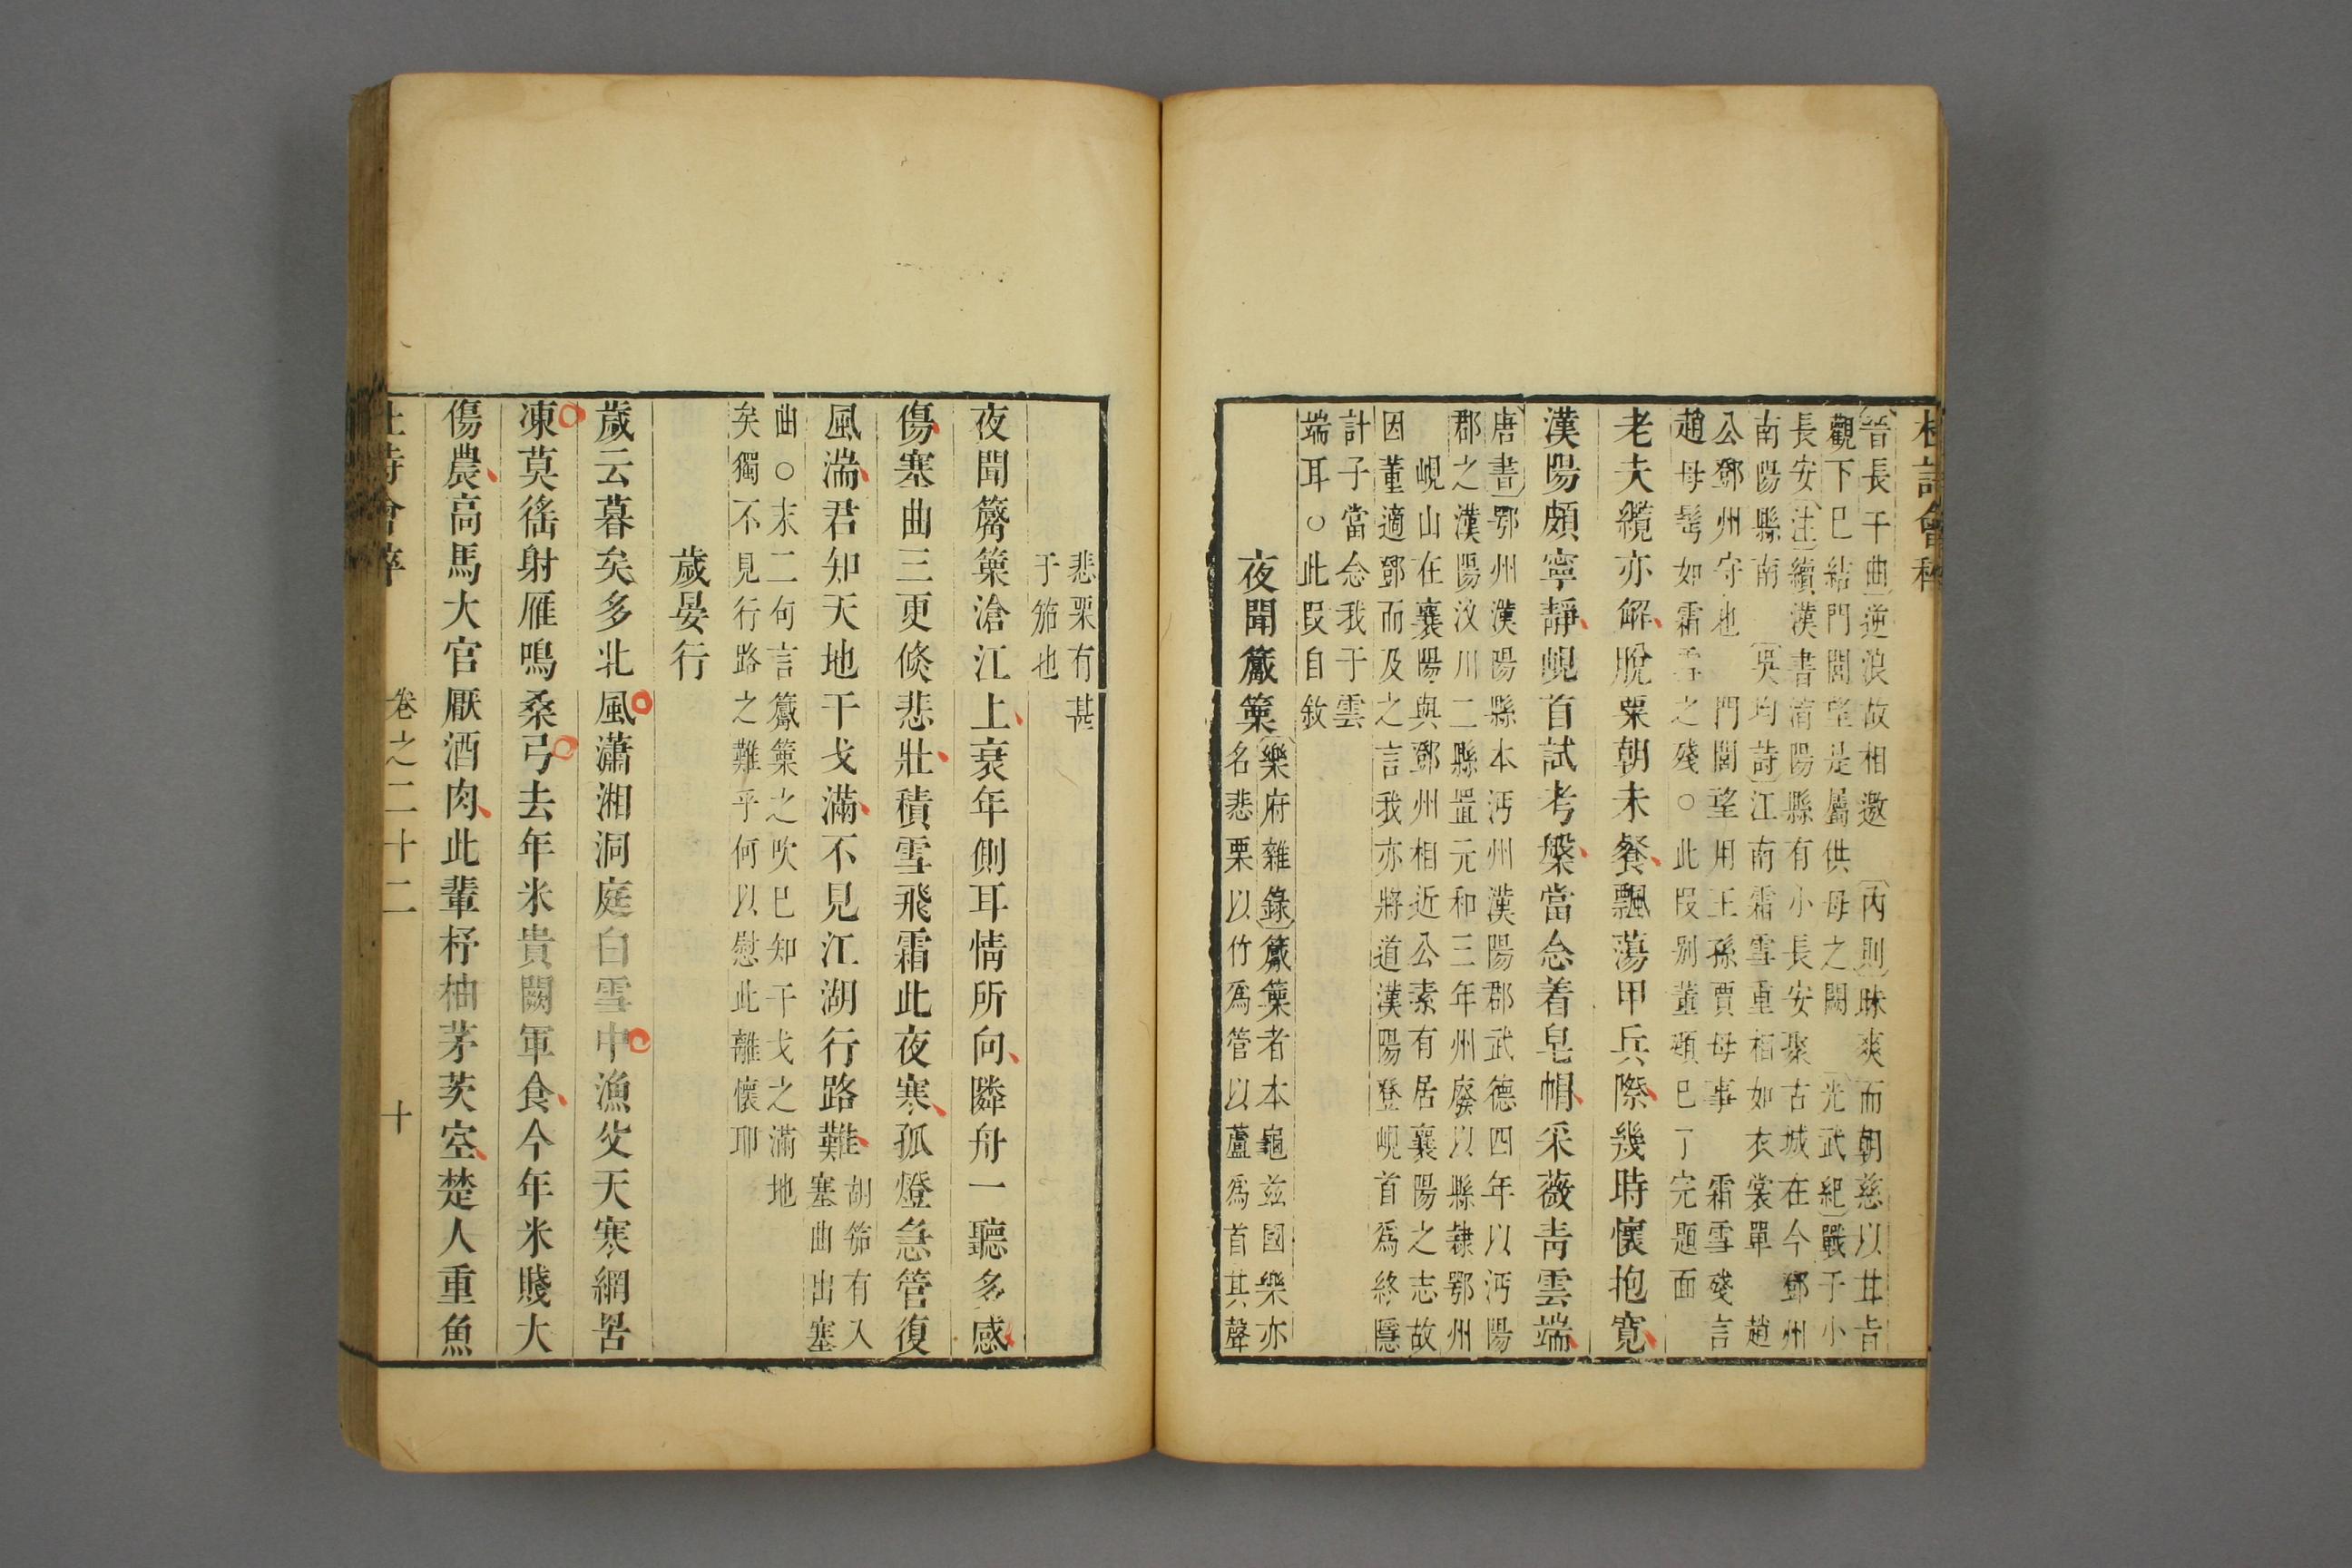 杜詩會稡
晉長干曲逆浪故相邀　內則昧爽而朝慈以甘旨
觀下巳結門閭望是屬供母之闕　光武紀戰于小
長安注續漢書淯陽縣有小長安聚古城在今鄧州
南陽縣南　吳均詩江南霜雪重相如衣裳單　趙
公鄧州守也　門閭望用王孫賈母事　霜雪殘言
趙母髩如霜雪之殘○此段別董頲巳了完題面
老夫纜亦解脫粟朝未餐飄蕩甲兵際幾時懷抱寬
漢陽頗寧靜峴首試考槃當念着皂帽采薇靑雲端
唐書鄂州漢陽縣本沔州漢陽郡武德四年以沔陽
郡之漢陽汊川二縣置元和三年州廢以縣隸鄂州
峴山在襄陽與鄧州相近公素有居襄陽之志故
因董適鄧而及之言我亦將道漢陽登峴首爲終隱
計子當念我于雲
端耳○此段自敘
夜聞觱篥
樂府雜錄觱篥者本龜茲國樂亦
名悲栗以竹爲管以蘆爲首其聲
悲栗有甚
于笳也
夜聞觱篥滄江上衰年側耳情所向隣舟一聽多感
傷塞曲三更倏悲壯積雪飛霜此夜寒孤燈急管復
風湍君知天地干戈滿不見江湖行路難
胡笳有入
塞曲出塞
曲○末二何言觱篥之吹巳知干戈之滿地
矣獨不見行路之難乎何以慰此離懷耶
歲晏行
歲云暮矣多北風瀟湘洞庭白雪中漁父天寒網罟
凍莫徭射雁鳴桑弓去年米貴闕軍食今年米賤大
傷農高馬大官厭酒肉此輩杼柚茅茨空楚人重魚
杜詩會稡　卷之二十二　十